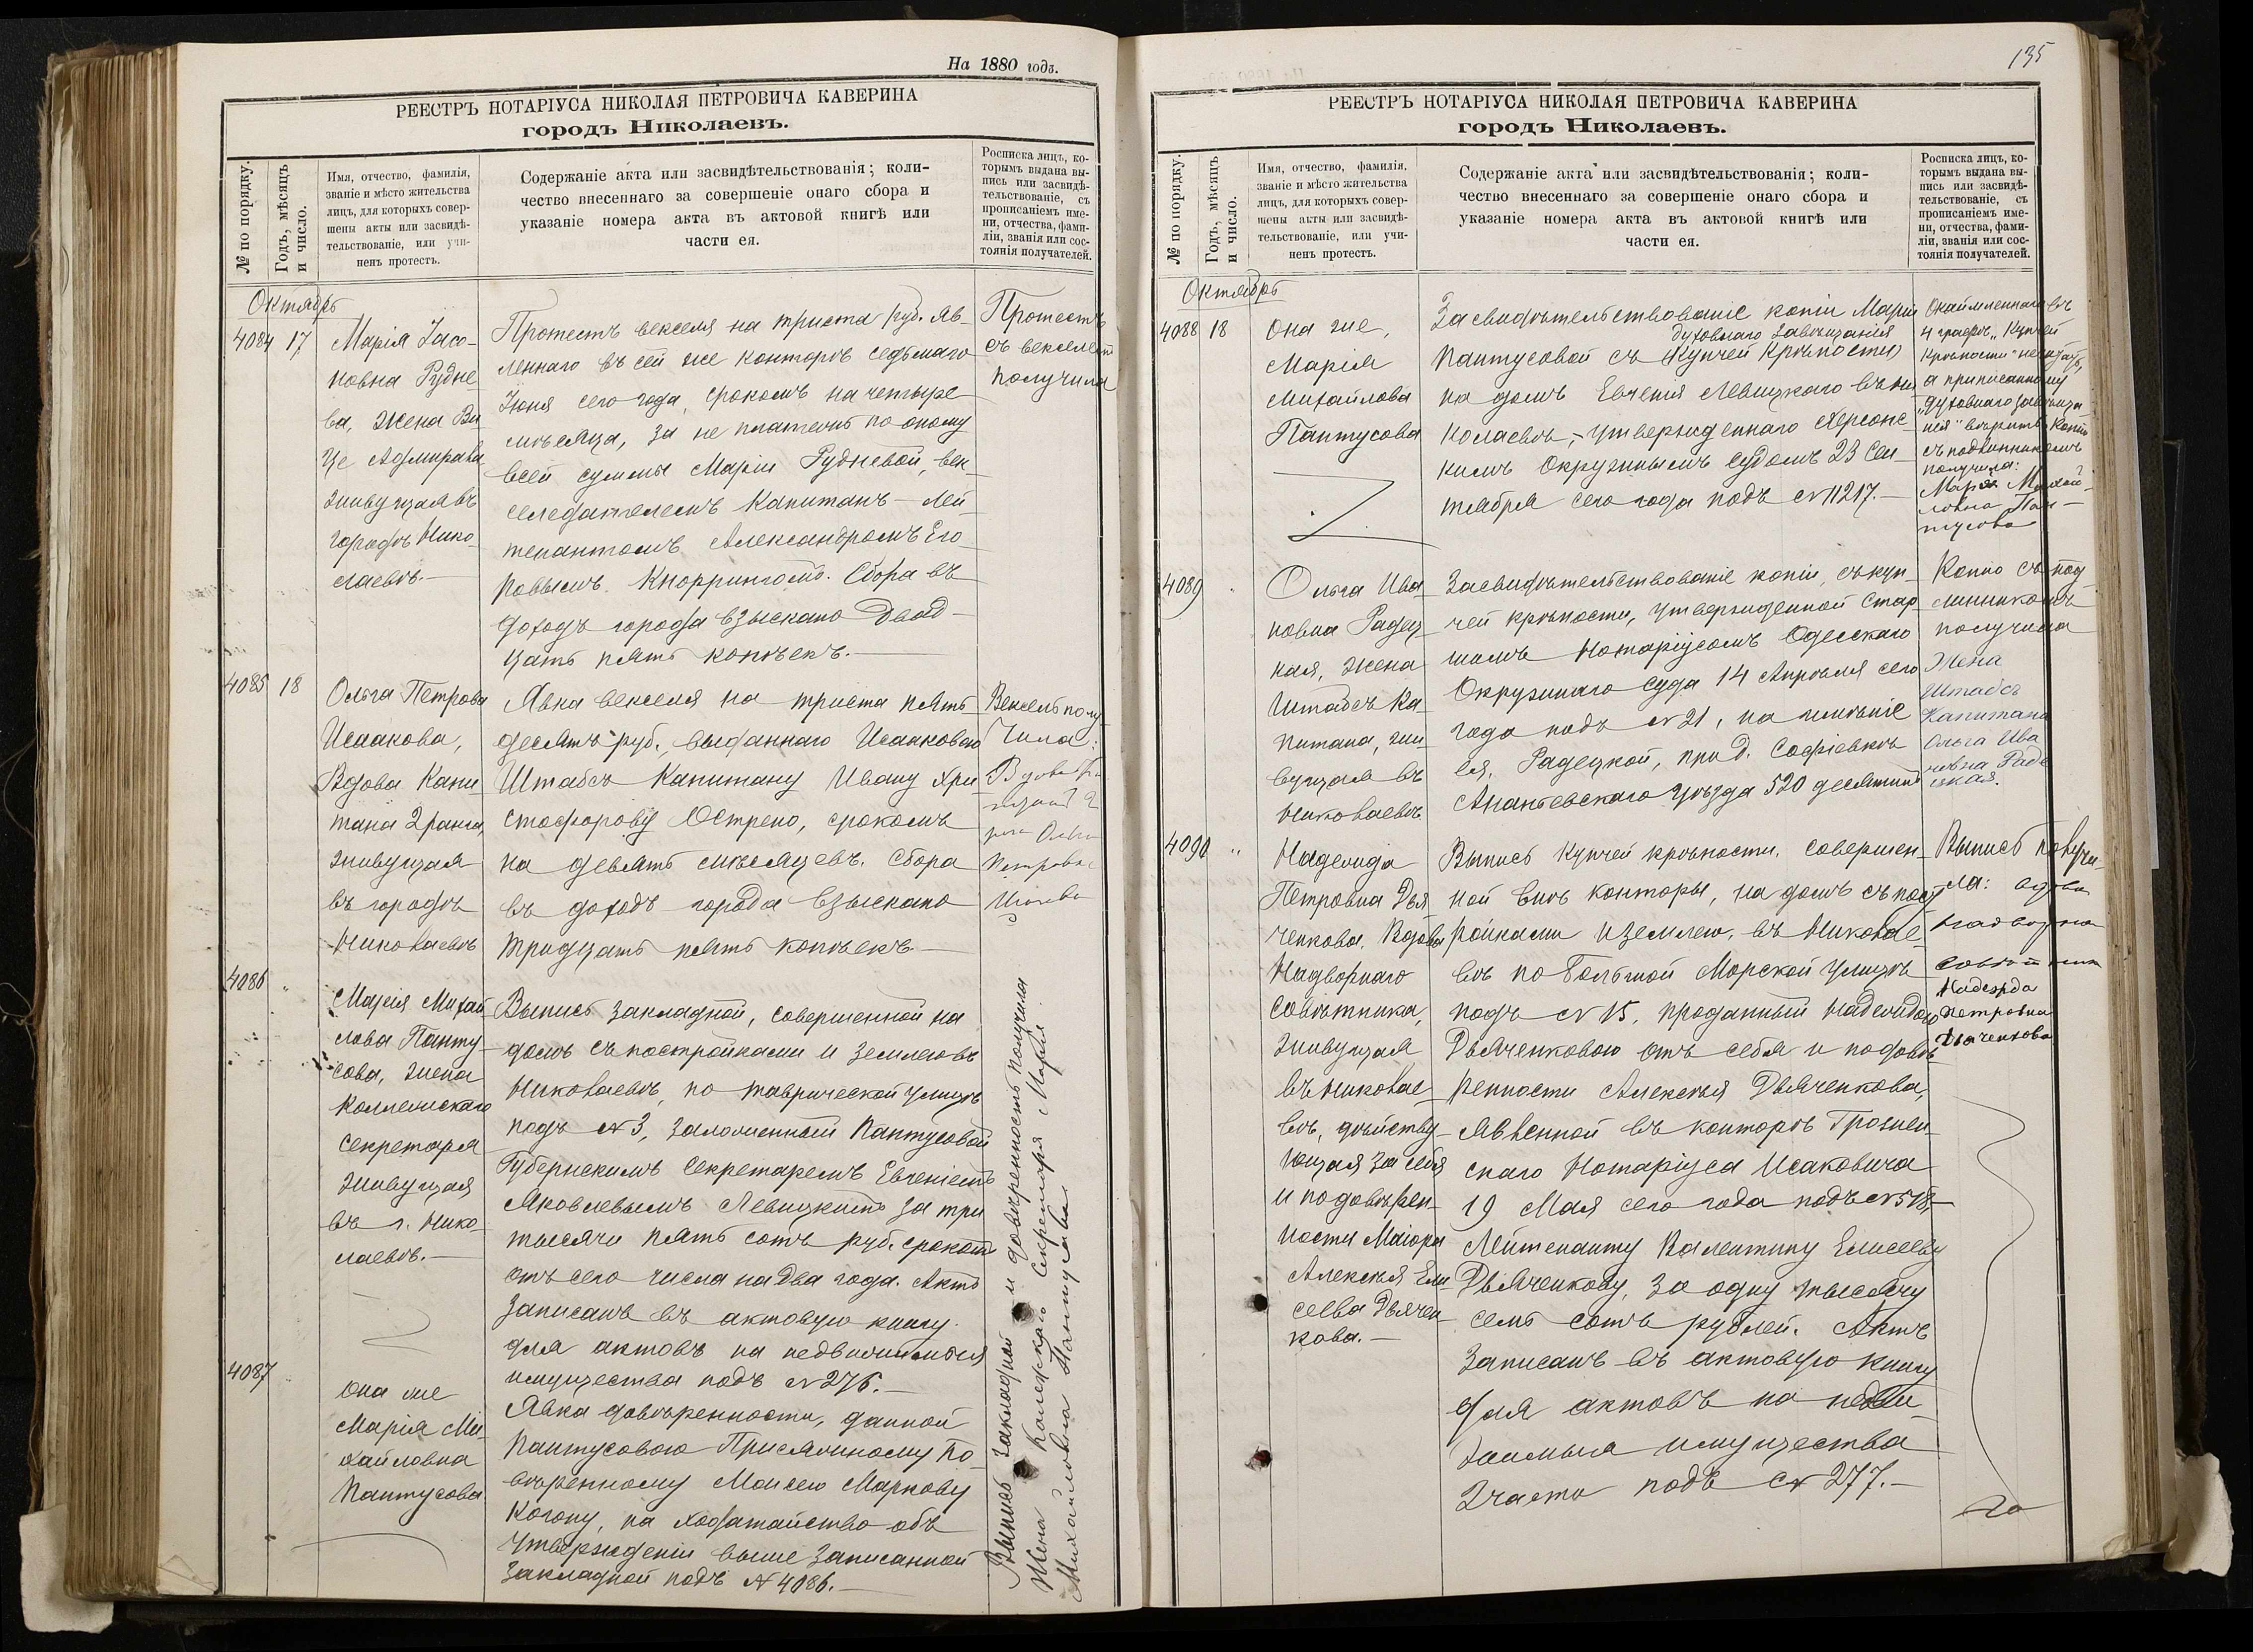 На 1880 годъ.
РЕЕСТРЪ НОТАРІУСА НИКОЛАЯ ПЕТРОВИЧА КАВЕРИНА
городъ Николаевъ.
№ по порядку.
Годъ, мѣсяцъ
и число.
Имя, отчество, фамилія,
званіе и мѣсто жительства
лицъ, для которыхъ совер-
шены акты или засвидѣ-
тельствованіе, или учи-
ненъ протестъ.
Содержаніе акта или засвидѣтельствованія; коли-
чество внесеннаго за совершеніе онаго сбора и
указаніе номера акта въ актовой книгѣ или
части ея.
Росписка лицъ, ко-
торымъ выдана вы-
пись или засвидѣ-
тельствованіе, съ
прописаніемъ име-
ни, отчества, фами-
ліи, званія или сос-
тоянія получателей.
Октябрь
4084 17
Марія
новна Рудне
ва, жена Ви
це Адмирала
живущая въ
городѣ Нико
лаевѣ.—
Протестъ векселя на триста руб. яв-
леннаго въ сей же конторѣ седьмаго
Іюня сего года, срокомъ на четыре
мѣсяца, за не платежъ по оному
всей суммы Маріи Рудневой, век
селедателемъ Капитанъ-Лей
тенантомъ Александромъ Его
ровымъ Кноррингомъ. Сбора въ
доходъ города взыскано двад-
цать пять копѣекъ.—
Протестъ
съ векселемъ
получила
4085 18
Ольга Петрова
Исакова,
Вдова Капи
тана 2 ранга,
живущая
въ городѣ
Николаевѣ
Явка векселя на триста пять
десятъ руб. выданнаго Исаковою
Штабсъ Капитану Ивану Хри
стофорову Острено, срокомъ
на девять мѣсяцевъ. Сбора
въ доходъ города взыскано
тридцать пять копѣекъ—
Вексель полу
чила:
Вдова
Ольга
Петрова
4086 "
Марія Михай
лова Панту
сова, жена
Коллежскаго
Секретаря
живущая
въ г. Нико
лаевѣ.—
Выпись закладной, совершенной на
домъ съ постройками и землею въ
Николаевѣ, по Таврической улицѣ
подъ № 3, заложенный Пантусовой
Губернскимъ Секретаремъ Евгеніемъ
Яковлевымъ Левицкимъ за три
тысячи пять сотъ руб. срокомъ
отъ сего числа на два года. Актъ
записанъ въ актовую книгу
для актовъ на недвижимыя
имущества подъ № 276.—
4087 "
Она же
Марія Ми-
хайловна
Пантусова
Явка довѣренности, данной
Пантусовою Присяжному По-
вѣренному Моисею Маркову
Когону, на ходатайство объ
утвержденіи выше записанной
закладной подъ № 4086.—
Выпись закладной и довѣренность получила
Жена Колежскаго Секретаря Марія
Михайловна Пантусова
135
РЕЕСТРЪ НОТАРІУСА НИКОЛАЯ ПЕТРОВИЧА КАВЕРИНА
городъ Николаевъ.
№ по порядку.
Годъ, мѣсяцъ
и число.
Имя, отчество, фамилія,
званіе и мѣсто жительства
лицъ, для которыхъ совер-
шены акты или засвидѣ-
тельствованіе, или учи-
ненъ протестъ.
Содержаніе акта или засвидѣтельствованія; коли-
чество внесеннаго за совершеніе онаго сбора и
указаніе номера акта въ актовой книгѣ или
части ея.
Росписка лицъ, ко-
торымъ выдана вы-
пись или засвидѣ-
тельствованіе, съ
прописаніемъ име-
ни, отчества, фами-
ліи, званія или сос-
тоянія получателей.
Октябрь
4088 18
Она же,
Марія
Михайлова
Пантусова
Засвидѣтельствованіе копіи Маріи
духовнаго завѣщанія
Пантусовой съ (купчей крѣпости)
на домъ Евгенія Левицкаго въ Ни
колаевѣ,- утвержденнаго Херсонс
кимъ Окружнымъ Судомъ 23 Сен
тября сего года подъ № 11217.—
въ
4 графѣ „Купчей
крѣпости" не читать,
а приписанному
„духовнаго завѣща
нія" вѣрить. Копію
съ подлинникомъ
получила:
Марія Михай-
ловна Пан-
тусова
4089 "
Ольга Ива
новна Радец
кая, жена
Штабсъ Ка
питана, жи
вущая въ
Николаевѣ
Засвидѣтельствованіе копіи, съ куп
чей крѣпости, утвержденной Стар
шимъ Нотаріусомъ Одесскаго
Окружнаго Суда 14 Апрѣля сего
года подъ № 21, на имѣніе
ея, Радецкой, при д. Софіевкѣ
Ананьевскаго уѣзда 520 десятинъ
Копію съ под
линникомъ
получила
Жена
Штабсъ
Капитана
Ольга Ива
новна Раде
цкая.
4090 "
Надежда
Петровна Дья
ченкова. Вдова
Надворнаго
Совѣтника,
живущая
въ Николае
вѣ, дѣйству-
ющая за себя
и по довѣрен-
ности Маіора
Алексѣя Ели
сеева Дьячен
кова.—
Выпись купчей крѣпости, совершен-
ной внѣ конторы, на домъ съ пост
ройками и землею, въ Николае-
вѣ по Большой Морской улицѣ
подъ № 15, проданный Надеждою
Дьяченковою отъ себя и по довѣ
ренности Алексѣя Дьяченкова,
явленной въ конторѣ Грознен
скаго Нотаріуса Исаковича
19 Мая сего года подъ № 518,—
Лейтенанту Валентину Елисееву
Дьяченкову, за одну тысячу
семь сотъ рублей. Актъ
записанъ въ актовую книгу
для актовъ на недви
жимыя имущества
2 части подъ № 277.—
Выпись получи
ла: вдова
надворна
совѣтника
Надежда
Петровна
Дьяченкова